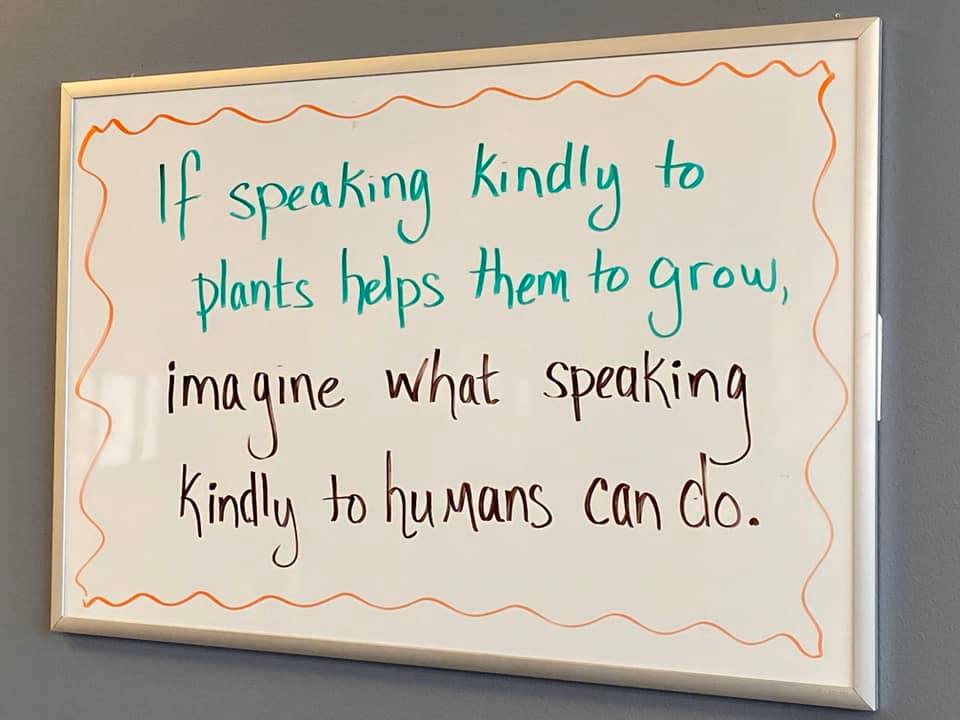 If speaking kindly to
plants helps them to grow,
imagine what speaking
kindly to humans can do.